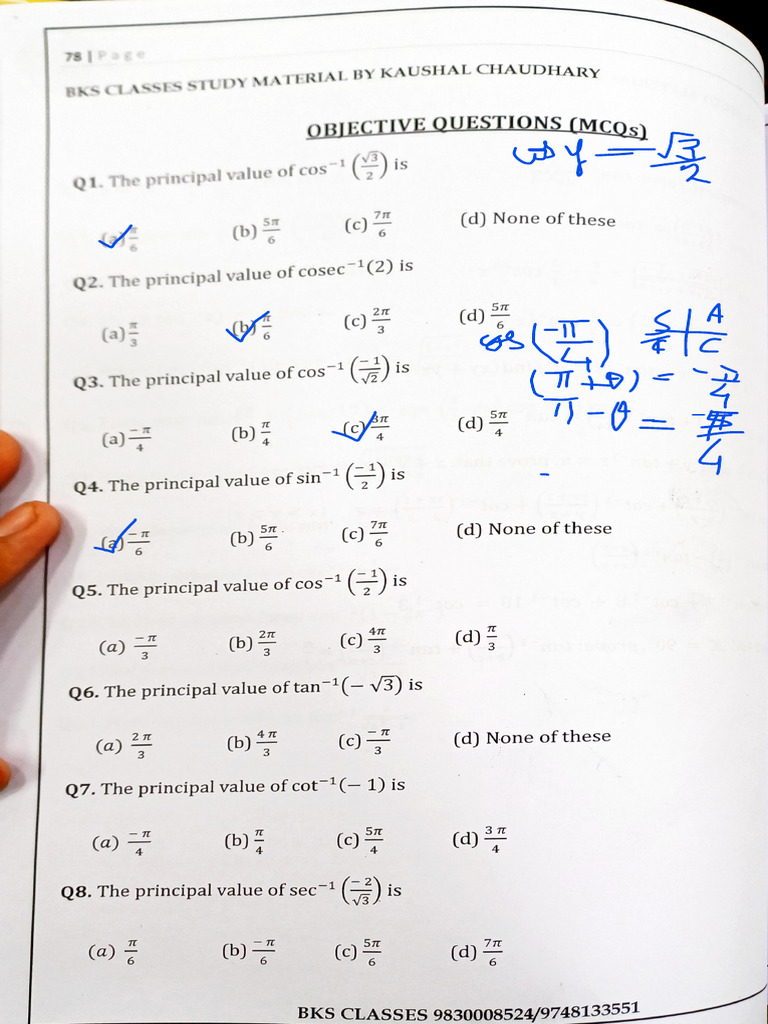 78 | Page
BKS CLASSES STUDY MATERIAL BY KAUSHAL CHAUDHARY
OBJECTIVE QUESTIONS (MCQs)
cos y = √3/2
Q1. The principal value of cos⁻¹ (√3/2) is
(a) π/6 (b) 5π/6 (c) 7π/6 (d) None of these
Q2. The principal value of cosec⁻¹(2) is
(a) π/3 (b) π/6 (c) 2π/3 (d) 5π/6
cos (-π/4)
S A
C
Q3. The principal value of cos⁻¹ (-1/√2) is
(π + θ) = -π/4
(a) -π/4 (b) π/4 (c) 3π/4 (d) 5π/4
π - θ = -π/4
Q4. The principal value of sin⁻¹ (-1/2) is
(a) -π/6 (b) 5π/6 (c) 7π/6 (d) None of these
Q5. The principal value of cos⁻¹ (-1/2) is
(a) -π/3 (b) 2π/3 (c) 4π/3 (d) π/3
Q6. The principal value of tan⁻¹(- √3) is
(a) 2 π/3 (b) 4 π/3 (c) -π/3 (d) None of these
Q7. The principal value of cot⁻¹(- 1) is
(a) -π/4 (b) π/4 (c) 5π/4 (d) 3 π/4
Q8. The principal value of sec⁻¹ (-2/√3) is
(a) π/6 (b) -π/6 (c) 5π/6 (d) 7π/6
BKS CLASSES 9830008524/9748133551